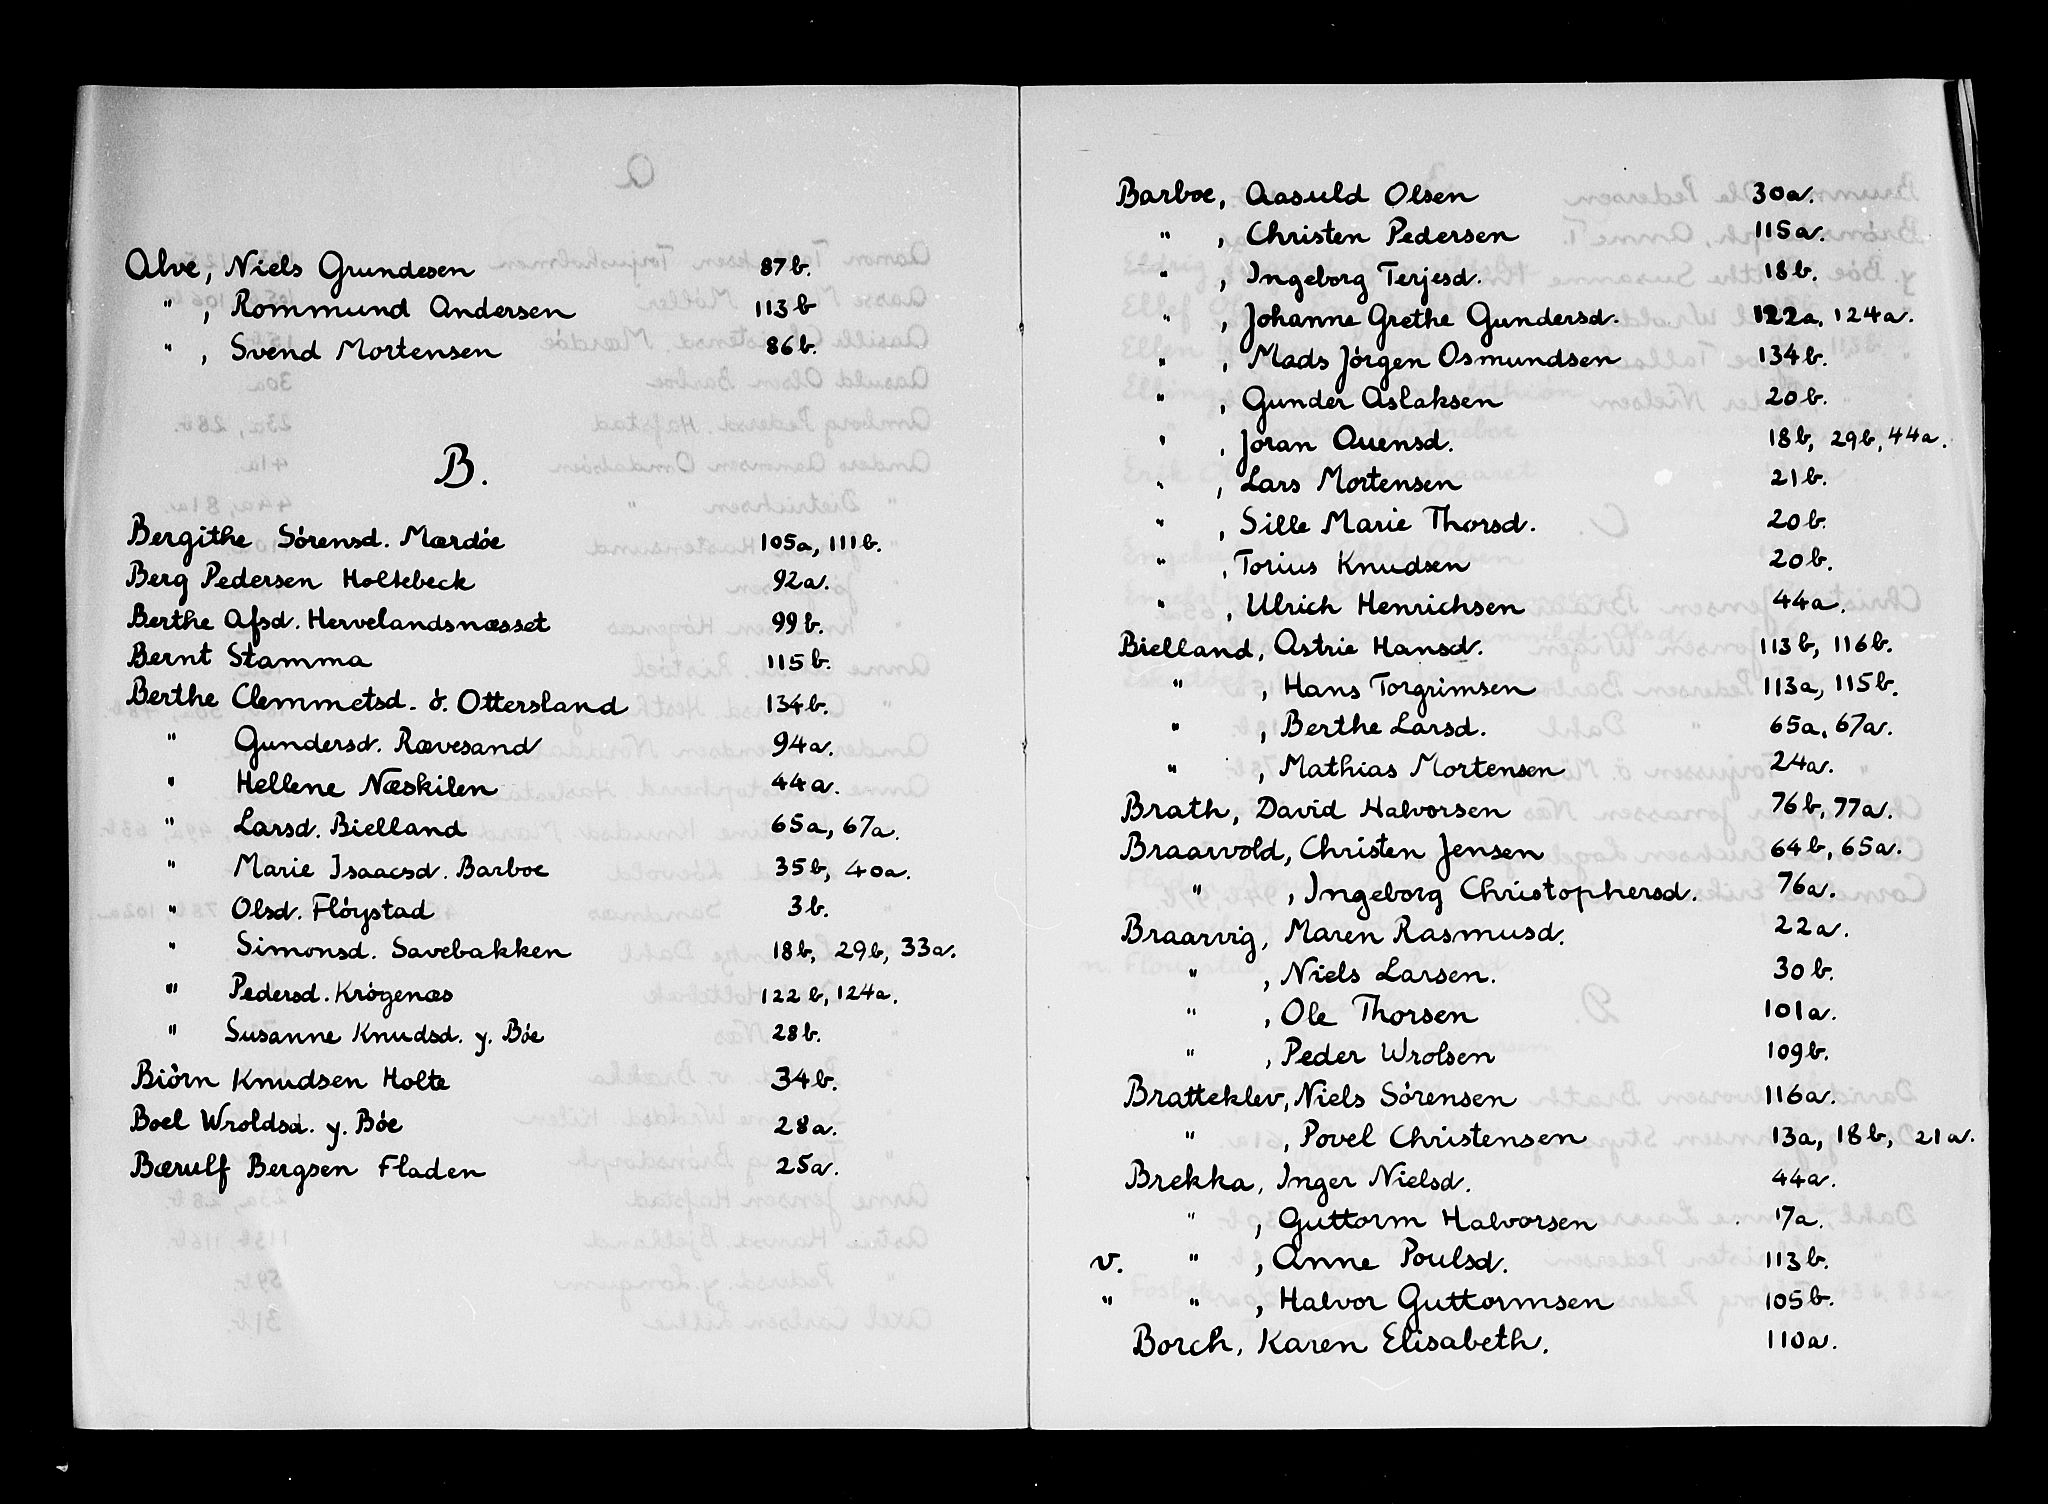 Alve, Niels Grundesen 87b.
" , Rommund Andersen 113b
" , Svend Mortensen 86b.
B.
Bergithe Sórensd. Mærdóe 105a, 111b.
Berg Pedersen Holtebeck 92a.
Berthe Afsd. Hervelandsnæsset 99b.
Bernt Stamma 115b.
Berthe Clemmetsd. ó. Ottersland 134b.
" Gundersd. Rævesand 94a.
" Hellene Næskilen 44a.
" Larsd. Bielland 65a, 67a.
" Marie Isaacsd. Barboe 35b, 40a.
" Olsd. Flóystad 3b.
" Simonsd. Savebakken 18b, 29b, 33a.
" Pedersd. Krógenæs 122b, 124a.
" Susanne Knudsd. y. Bóe 28b.
Biórn Knudsen Holte 34b.
Boel Wroldsd. y. Bóe 28a.
Bærulf Bergsen Fladen 25a.
Barboe, Aasuld Olsen 30a.
" , Christen Pedersen 115a.
" , Ingeborg Terjesd. 18b.
" , Johanne Grethe Gundersd. 122a, 124a.
" , Mads Jórgen Osmundsen 134b.
" , Gunder Aslaksen 20b.
" , Joran Auensd. 18b, 29b, 44a.
" , Lars Mortensen 21b.
" , Sille Marie Thorsd. 20b.
" , Torius Knudsen 20b.
" , Ulrich Henrichsen 44a.
Bielland, Astrie Hansd. 113b, 116b.
" , Hans Torgrimsen 113a, 115b.
" , Berthe Larsd. 65a, 67a.
" , Mathias Mortensen 24a.
Brath, David Halvorsen 76b, 77a.
Braarvold, Christen Jensen 64b, 65a.
" , Ingeborg Christophersd. 76a.
Braarvig, Maren Rasmusd. 22a.
" , Niels Larsen. 30b.
" , Ole Thorsen 101a.
" , Peder Wrolsen 109b.
Bratteklev, Niels Sórensen 116a.
" , Povel Christensen 13a, 18b, 21a.
Brekka, Inger Nielsd. 44a.
" , Guttorm Halvorsen 17a.
v. " , Anne Poulsd. 113b.
" " , Halvor Guttormsen 105b.
Borch, Karen Elisabeth. 110a.